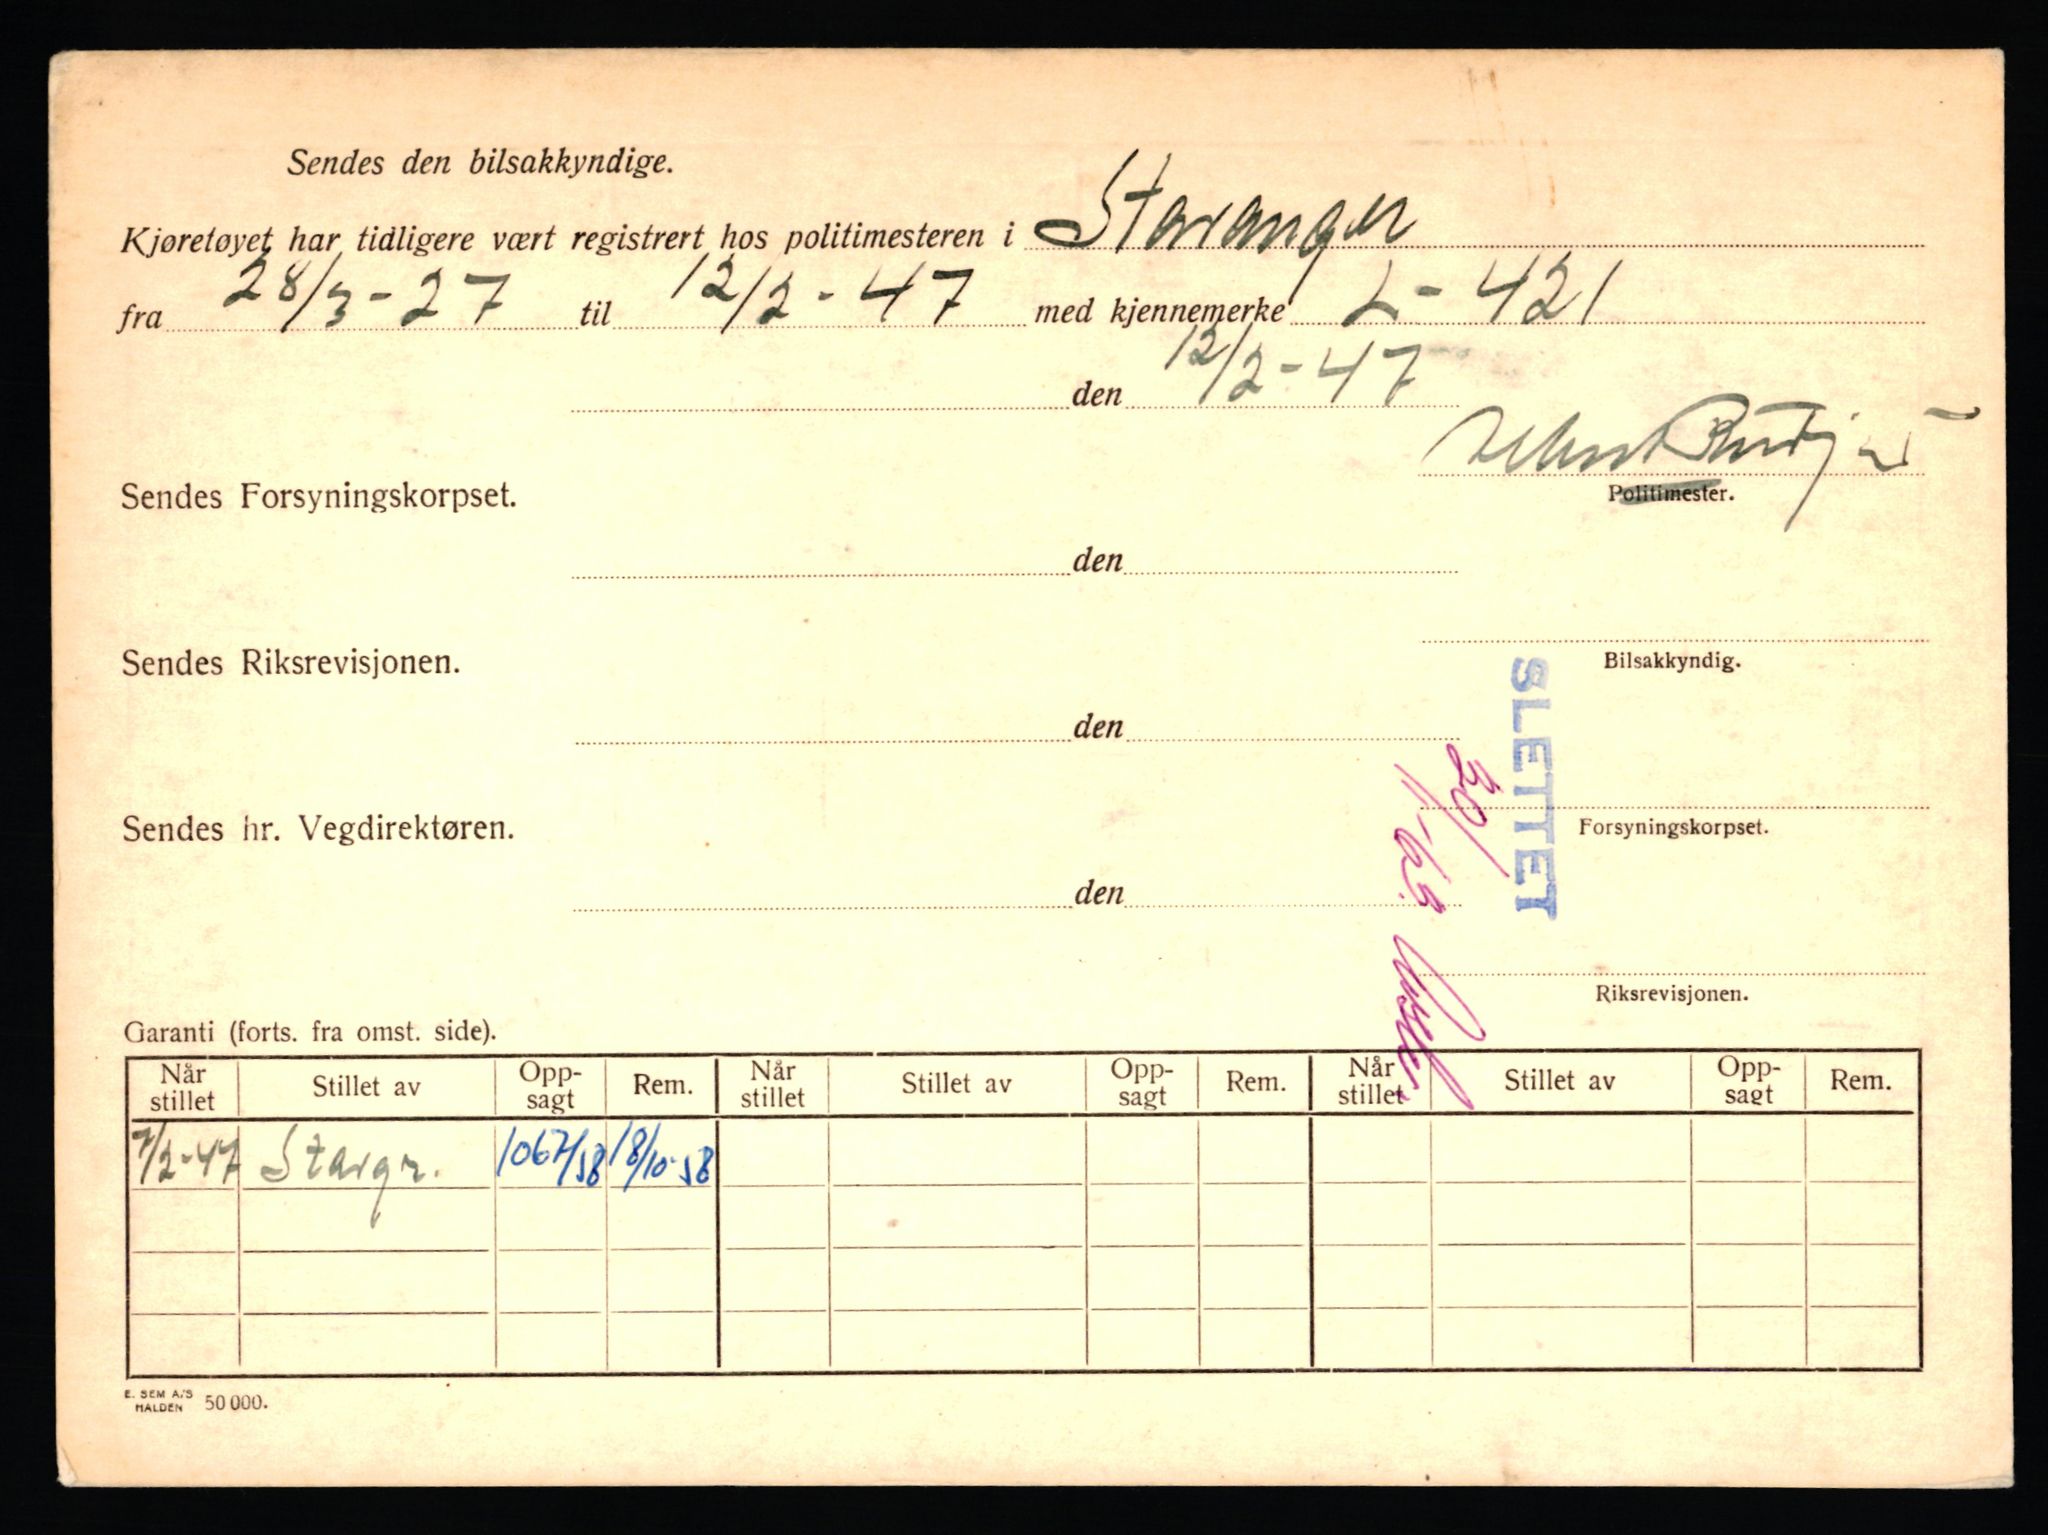 Sendes den bilsakkyndige.
Kjøretøyet har tidligere vært registrert hos politimesteren i Stavanger
fra 28/3-27 til 12/2-47 med kjennemerke L-421
den 12/2-47
Sendes Forsyningskorpset.
Politimester.
den
Sendes Riksrevisjonen.
Bilsakkyndig.
den
SLETTET
30/1-63.
Sendes hr. Vegdirektøren.
Forsyningskorpset.
den
Riksrevisjonen.
Garanti (forts. fra omst. side).
Når stillet Stillet av Opp-sagt Rem. Når stillet Stillet av Opp-sagt Rem. Når stillet Stillet av Opp-sagt Rem.
7/2-47 Stavgr. 1067/58 18/10-58
E. SEM A/S
HALDEN 50 000.